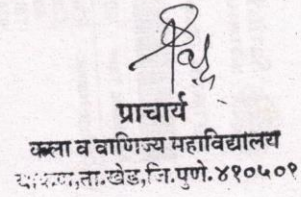 प्राचार्य
कला व वाणिज्य महाविद्यालय
ता.खेड,जि.पुणे. ४१०५०१